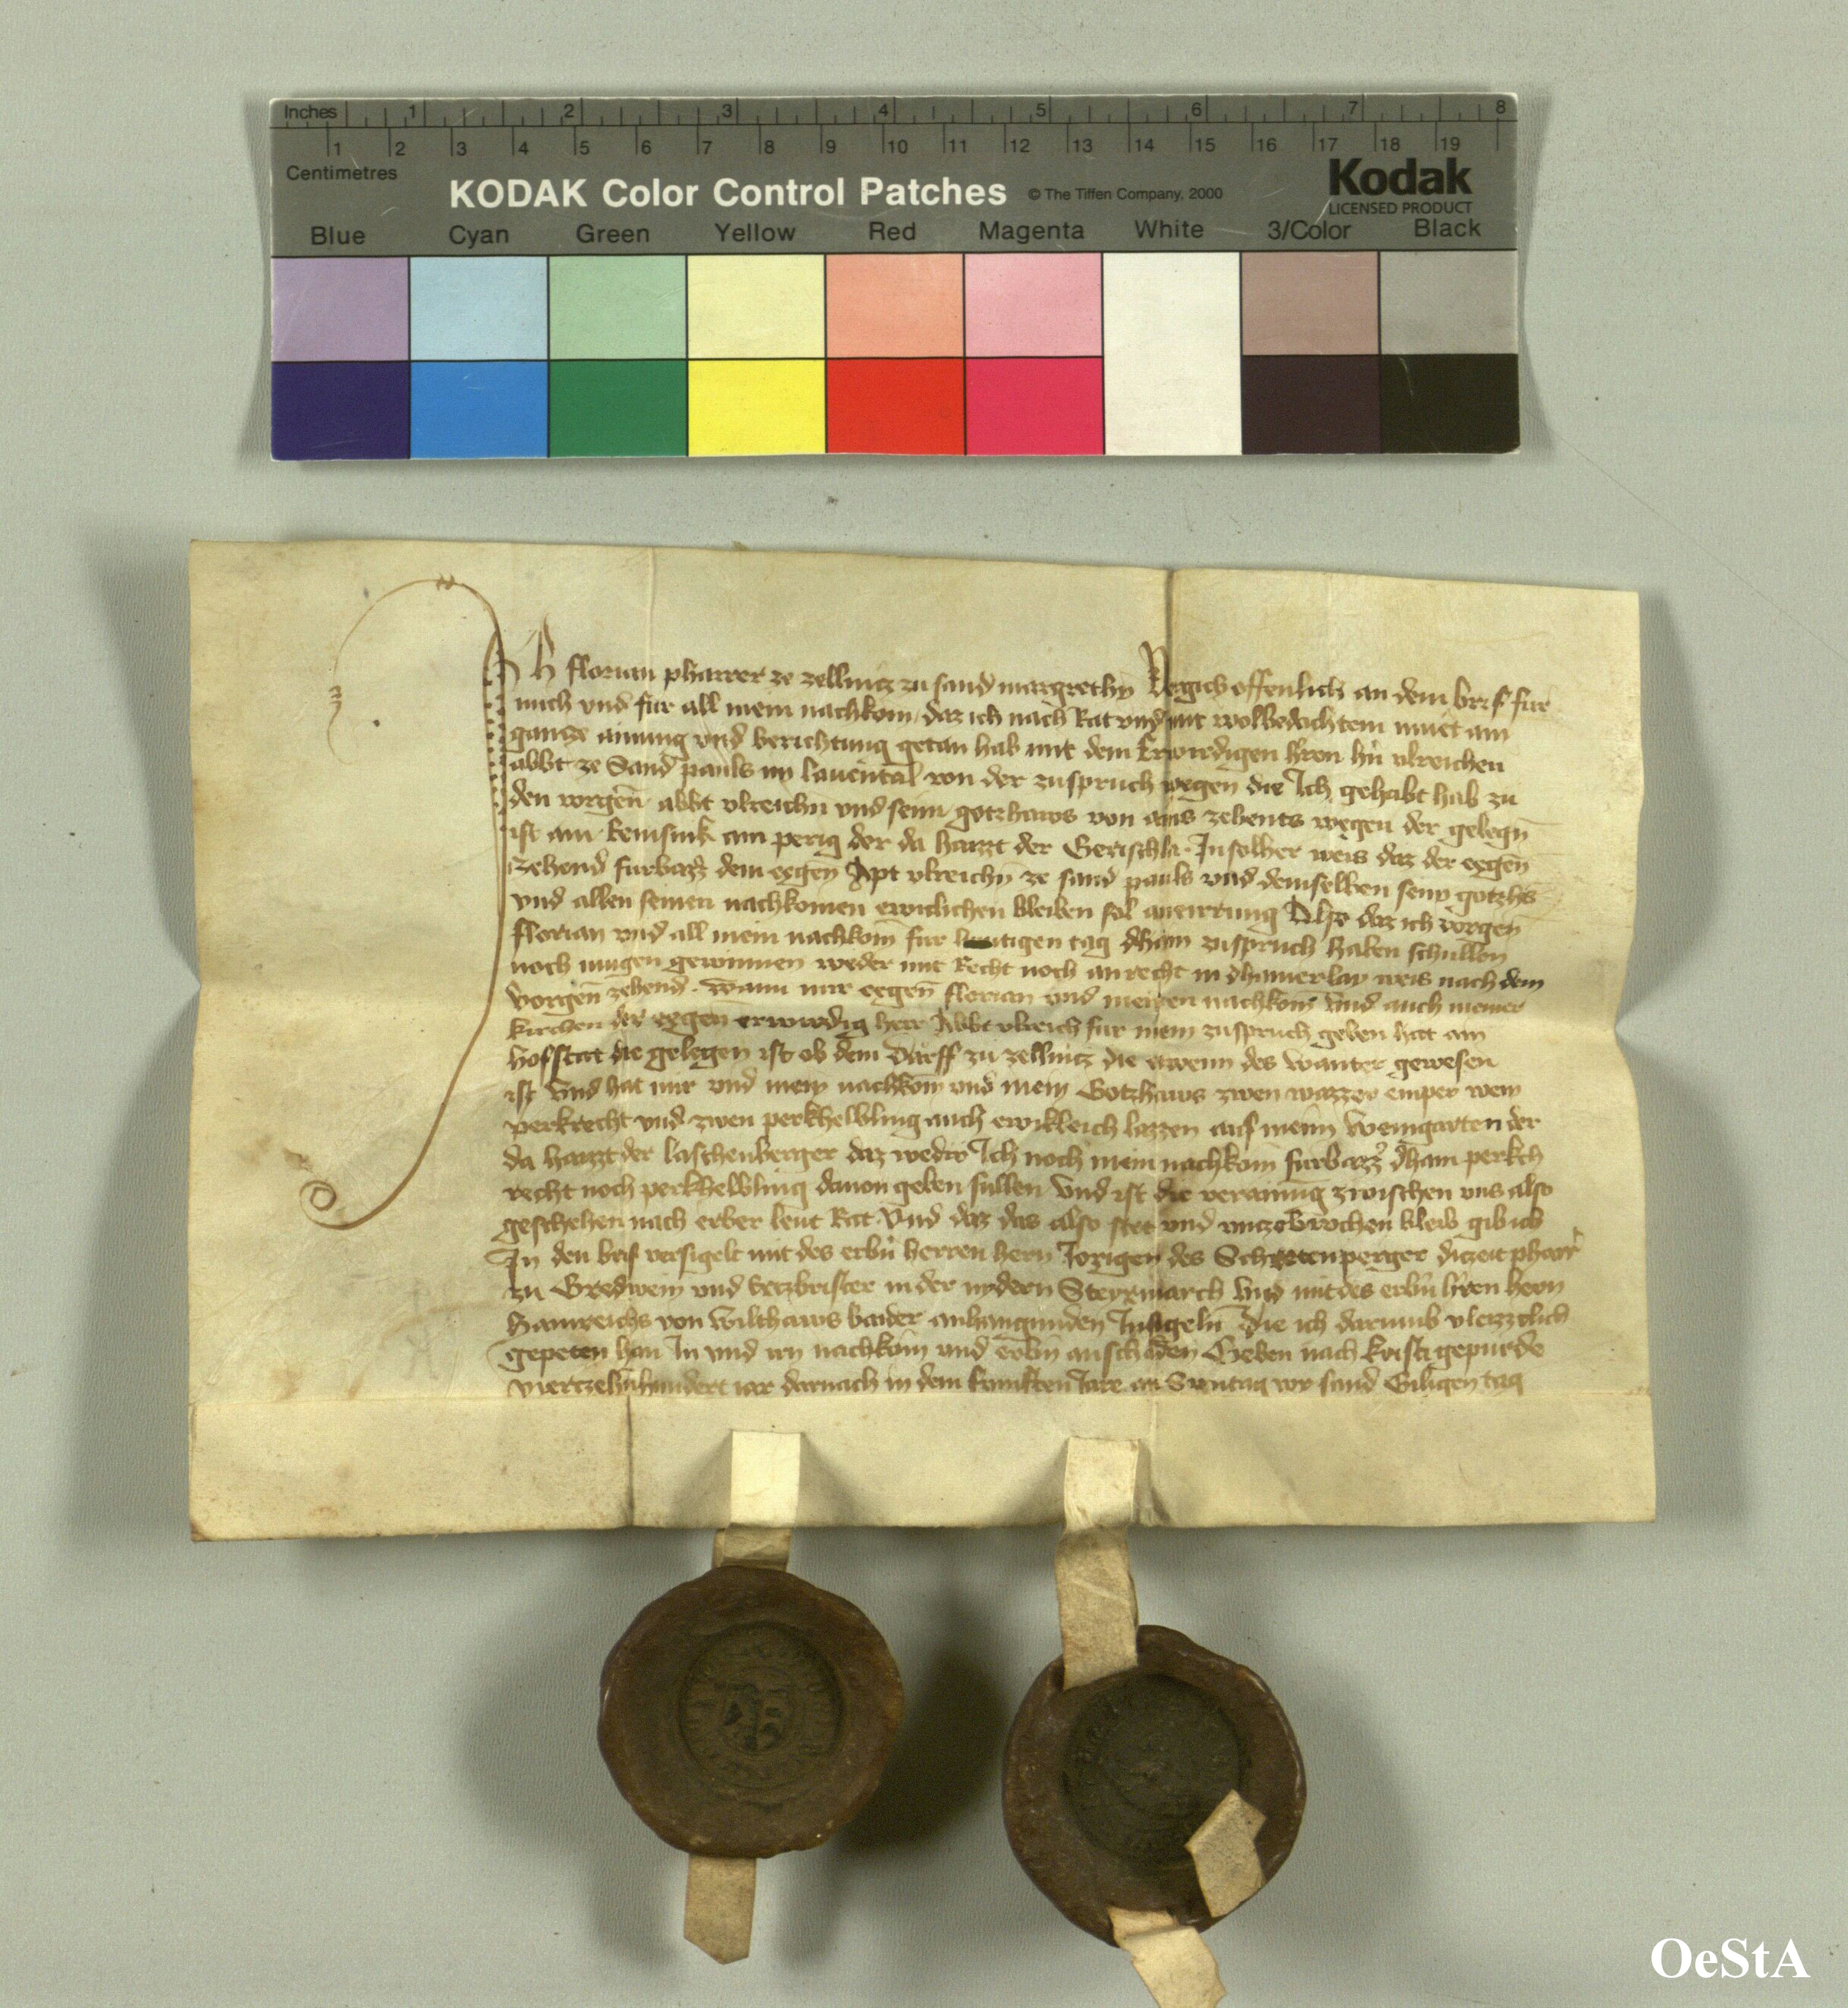 Inches 1 2 3 4 5 6 7 8
1 2 3 4 5 6 7 8 9 10 11 12 13 14 15 16 17 18 19
Centimetres
KODAK Color Control Patches © The Tiffen Company, 2000 Kodak
LICENSED PRODUCT
Blue Cyan Green Yellow Red Magenta White 3/Color Black
Ich florian pharrer ze zellnicz zu sand margrethn Vergich offenlich an dem brif fur
mich vnd fur all mein nachkom daz ich nach Rat vnd mit wolbedachtem muet ain
gancze ainung vnd berichtung getan hab mit dem Erwirdigen hern hn vlreichen
abbt ze Sand pauls im lauental von der zuspruch wegen die Ich gehabt hab zu
den vorgen abbt vlreichn vnd seim gotzhaws von ains zehents wegen der gelegn
ist am Remsnik am perig der da haizzt der Gerischla Insolher weis daz der egen
zehend furbazz dem egen Apt vlreichn ze sand pauls vnd demselben seim gotzhs
vnd allen seinen nachkomen ewiclichen bleiben sol an irrung Also daz ich vorgen
florian vnd all mein nachkom fur heutigen tag dhain zuspruch haben schullen
noch mugen gewinnen weder mit Recht noch an recht in dhainerlay weis nach dem
vorgen zehend wann mir egen florian vnd meinen nachkom vnd auch meiner
kirchen der egen erwirdig herr Abbt vlreich fur mein zuspruch geben hat ain
hofstat die gelegen ist ob dem darff zu zellnicz die etwenn des wanter gewesen
ist Vnd hat mir vnd mein nachkom vnd mein Gotzhaws zwen wazzer emper wein
perkrecht vnd zwen perkhelbling auch ewikleich lazzen auf meim weingarten der
da haizzt der laschenberger daz weder Ich noch mein nachkom furbazz dhain perkch
recht noch perkhelbling dauon geben sullen Vnd ist die verainung zwischen vns also
geschehen nach erber leut Rat Vnd daz das also stet vnd vnczebrochen bleib gib ich
In den brif versigelt mit des erbn herren hern Jorigen des Schretenperger diczeit pharr
zu Gredwein vnd Erczbrister in der nydern Steyrmarch Vnd mit des erbn hren hern
Hainreichs von Wilthaws baider anhangunden Insigeln Die ich darumb vleizzclich
gepeten han In vnd irn nachkom vnd erbn an schaden Geben nach kristi gepurde
viertzehnhundert iar darnach in dem Jare an Suntag vor sand Giligen tag
OeStA